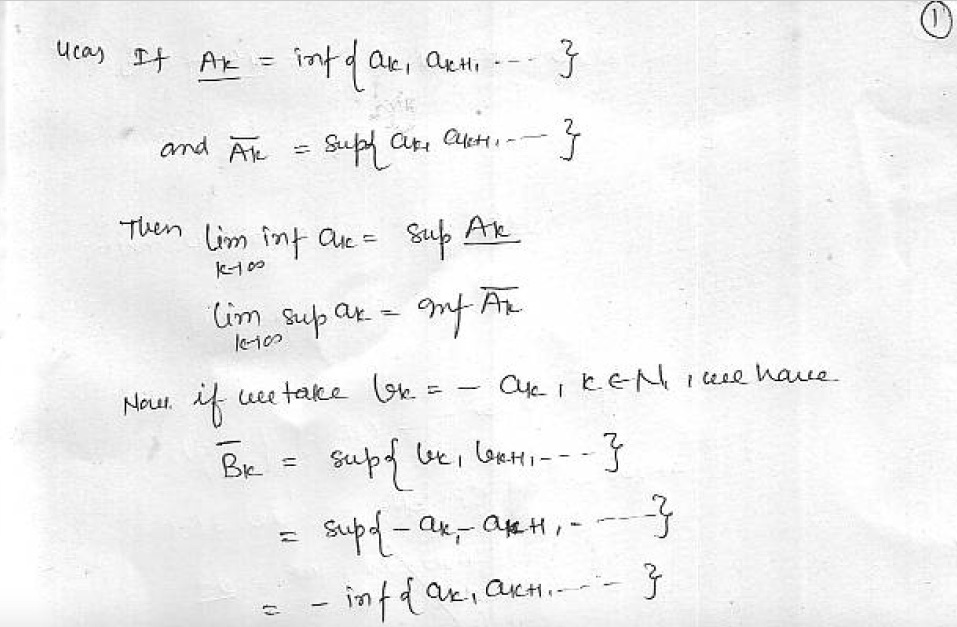 ①
4(a) If A̲k = inf{ak, ak+1, ---- }
and A̅k = sup{ak, ak+1, ---- }
Then lim inf ak = sup A̲k
k→∞
lim sup ak = inf A̅k
k→∞
Now if we take bk = - ak, k ∈ N, we have
B̅k = sup{bk, bk+1, --- }
= sup{-ak, -ak+1, ----- }
= - inf{ak, ak+1, ----- }